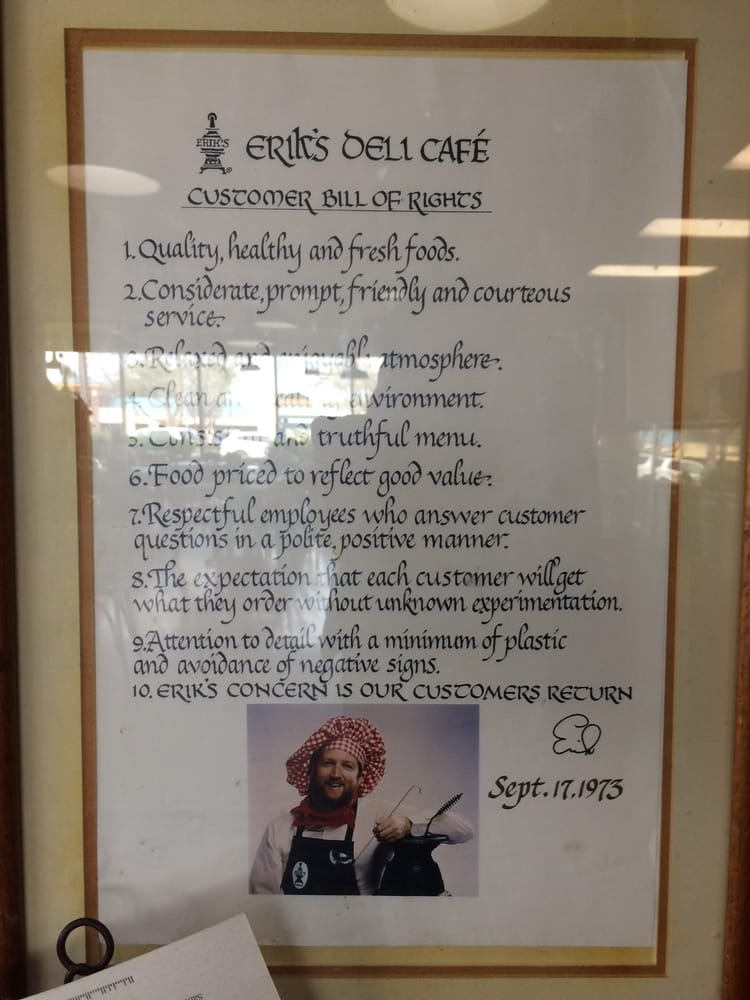 ERIK'S
ERIK'S DELI CAFÉ
CUSTOMER BILL OF RIGHTS
1. Quality, healthy and fresh foods.
2. Considerate, prompt, friendly and courteous
service.
3. Relaxed and enjoyable atmosphere.
4. Clean environment.
5. Consistent and truthful menu.
6. Food priced to reflect good value.
7. Respectful employees who answer customer
questions in a polite, positive manner.
8. The expectation that each customer will get
what they order without unknown experimentation.
9. Attention to detail with a minimum of plastic
and avoidance of negative signs.
10. ERIK'S CONCERN IS OUR CUSTOMERS RETURN
Erik
Sept. 17, 1973